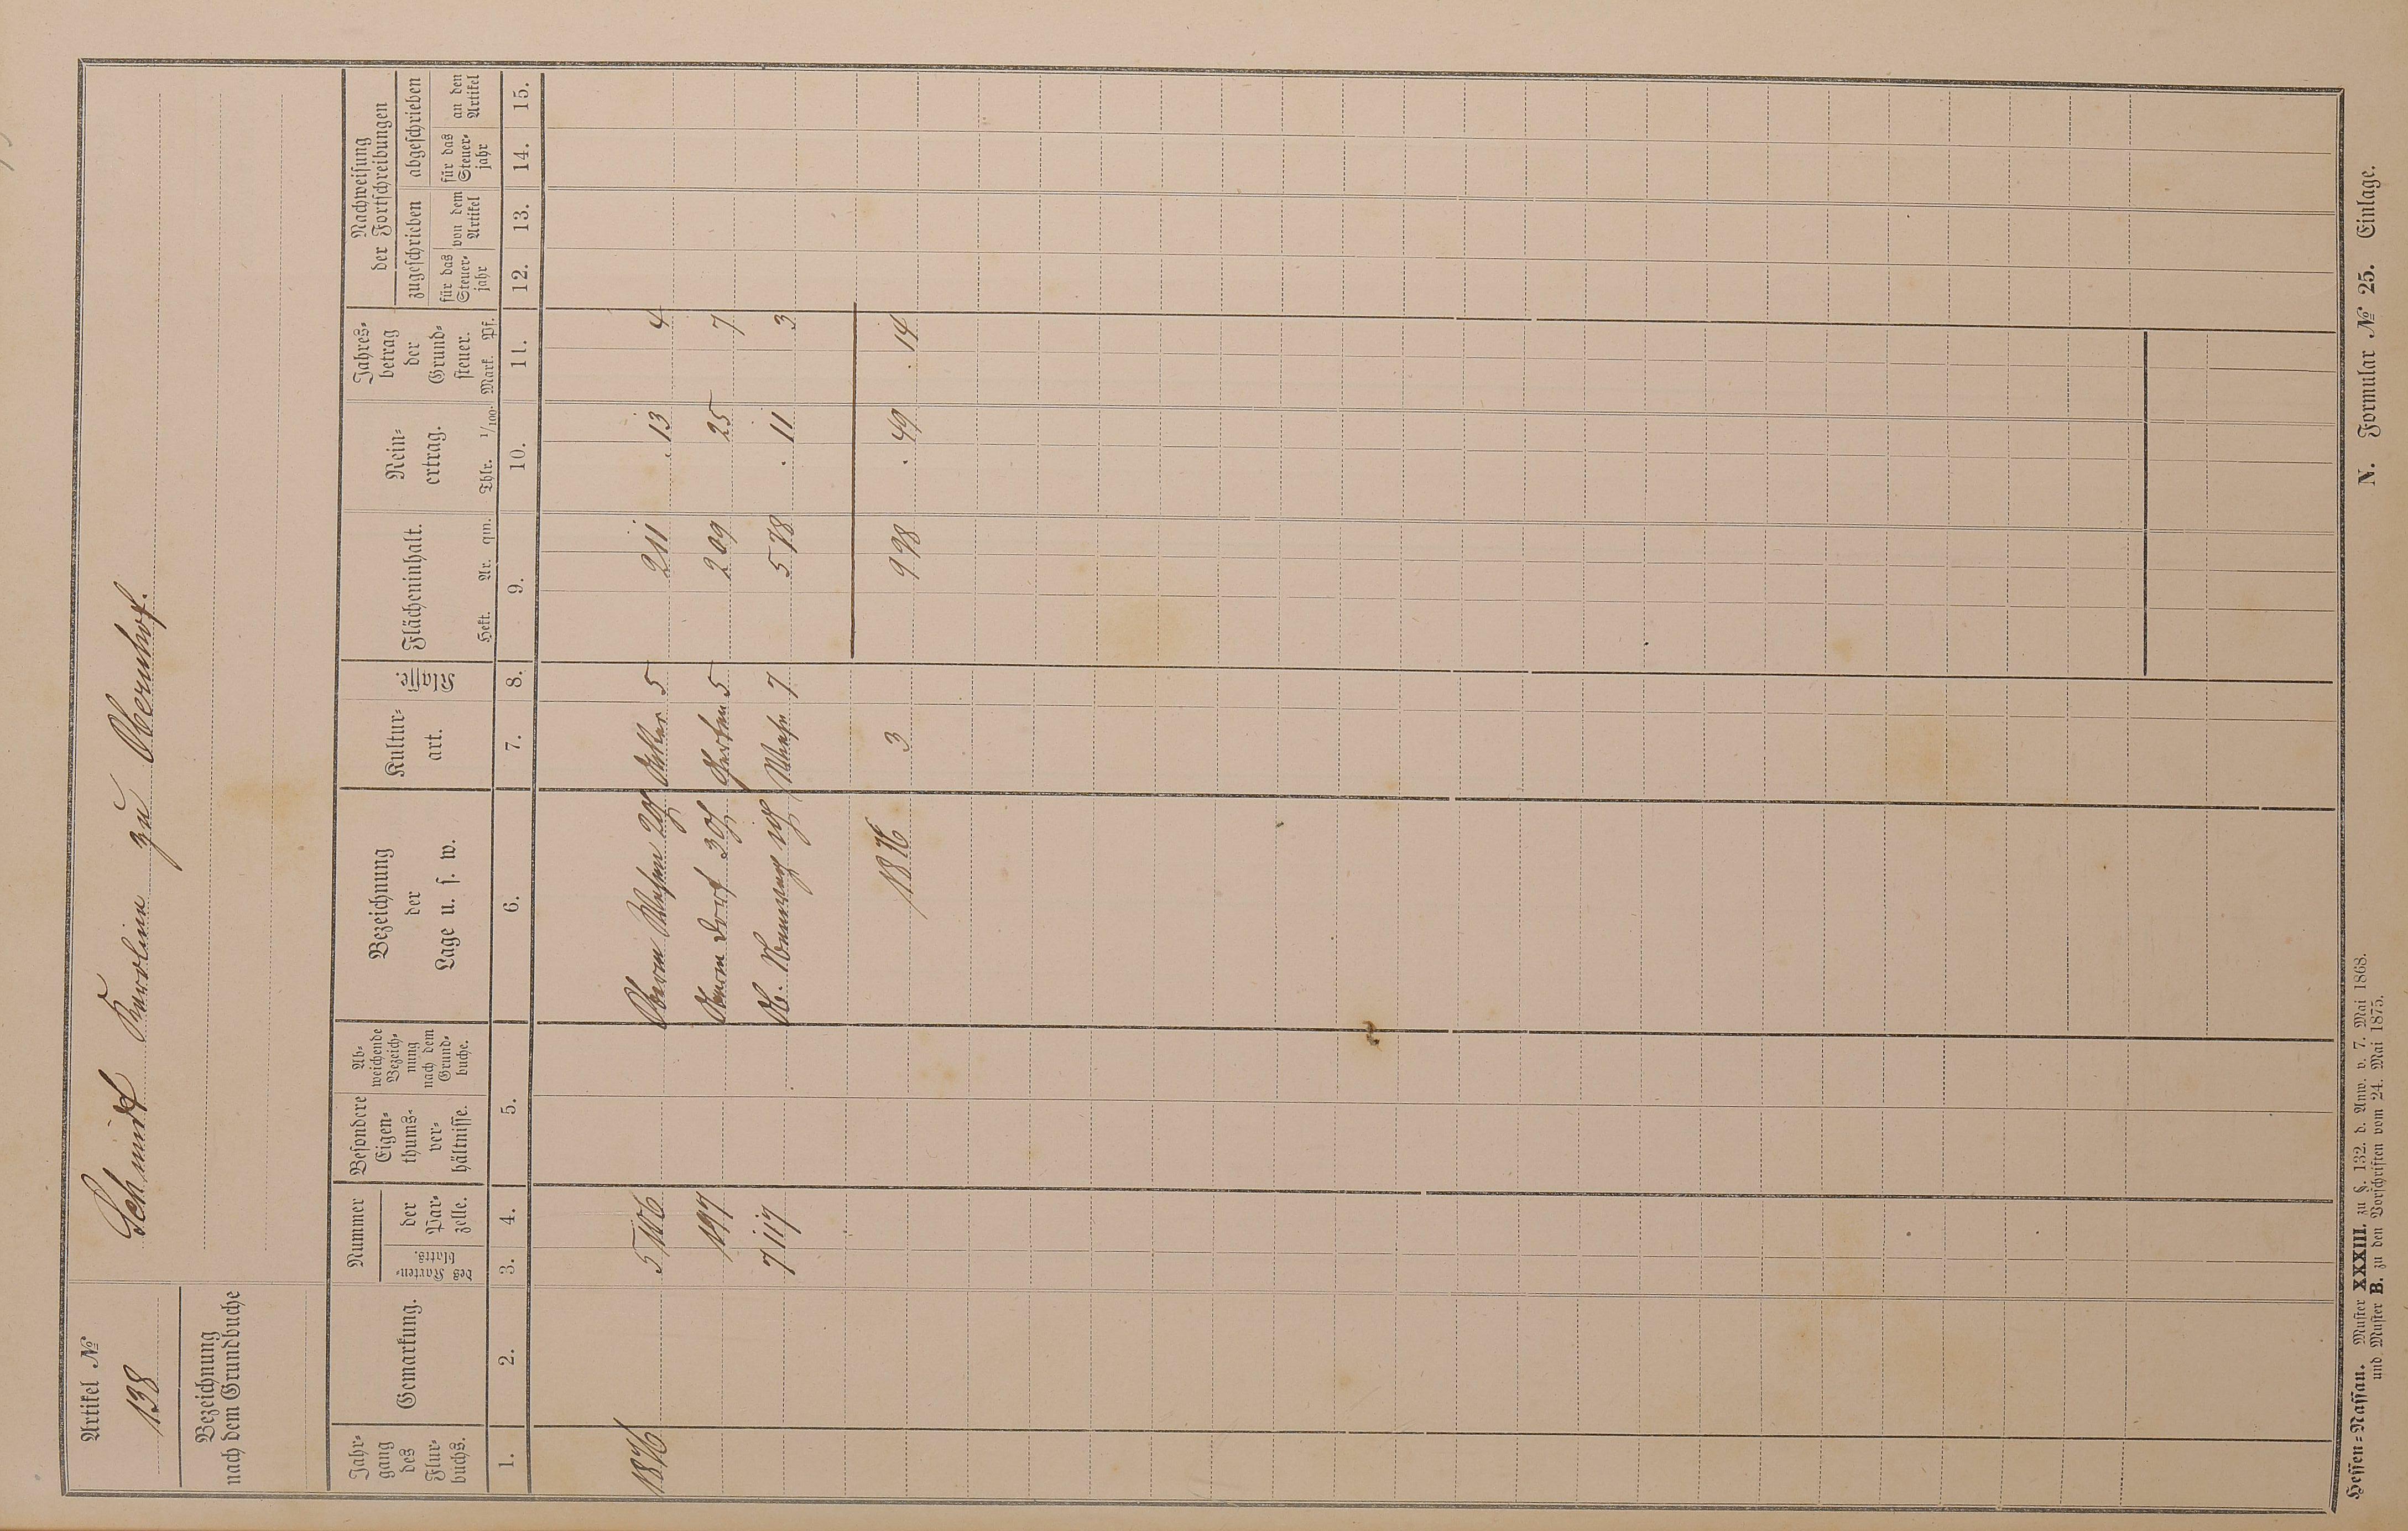 Artikel №
138
Schmidt Karoline zu Obernhof.
Bezeichnung
nach dem Grundbuche
Jahr-
gang
des
Flur-
buchs.
Gemarkung.
Nummer
des Karten-
blatts.
der
Par-
zelle.
Besondere
Eigen-
thums-
ver-
hältnisse.
Ab-
weichende
Bezeich-
nung
nach dem
Grund-
buche.
Bezeichnung
der
Lage u. s. w.
Kultur-
art.
Klasse
Flächeninhalt.
Hekt. Ar. qm.
Rein-
ertrag.
Thlr. 1/100.
Jahres-
betrag
der
Grund-
steuer.
Mark. Pf.
Nachweisung
der Fortschreibungen
zugeschrieben
abgeschrieben
für das
Steuer-
jahr
von dem
Artikel
für das
Steuer-
jahr
an den
Artikel
1. 2. 3. 4. 5. 6. 7. 8. 9. 10. 11. 12. 13. 14. 15.
1876 5 106 Oberm 2 Acker 5 2 11 . 13 4
197 Dorf 3 Garten 5 2 09 25 7
7 117 Wiese 7 5 78 . 11 3
1876 3 9 98 . 49 . 14
Hessen-Nassau. Muster XXXIII. zu §. 132. d. Anw. v. 7. Mai 1868.
und Muster B. zu den Vorschriften vom 24. Mai 1875.
N. Formular № 25. Einlage.